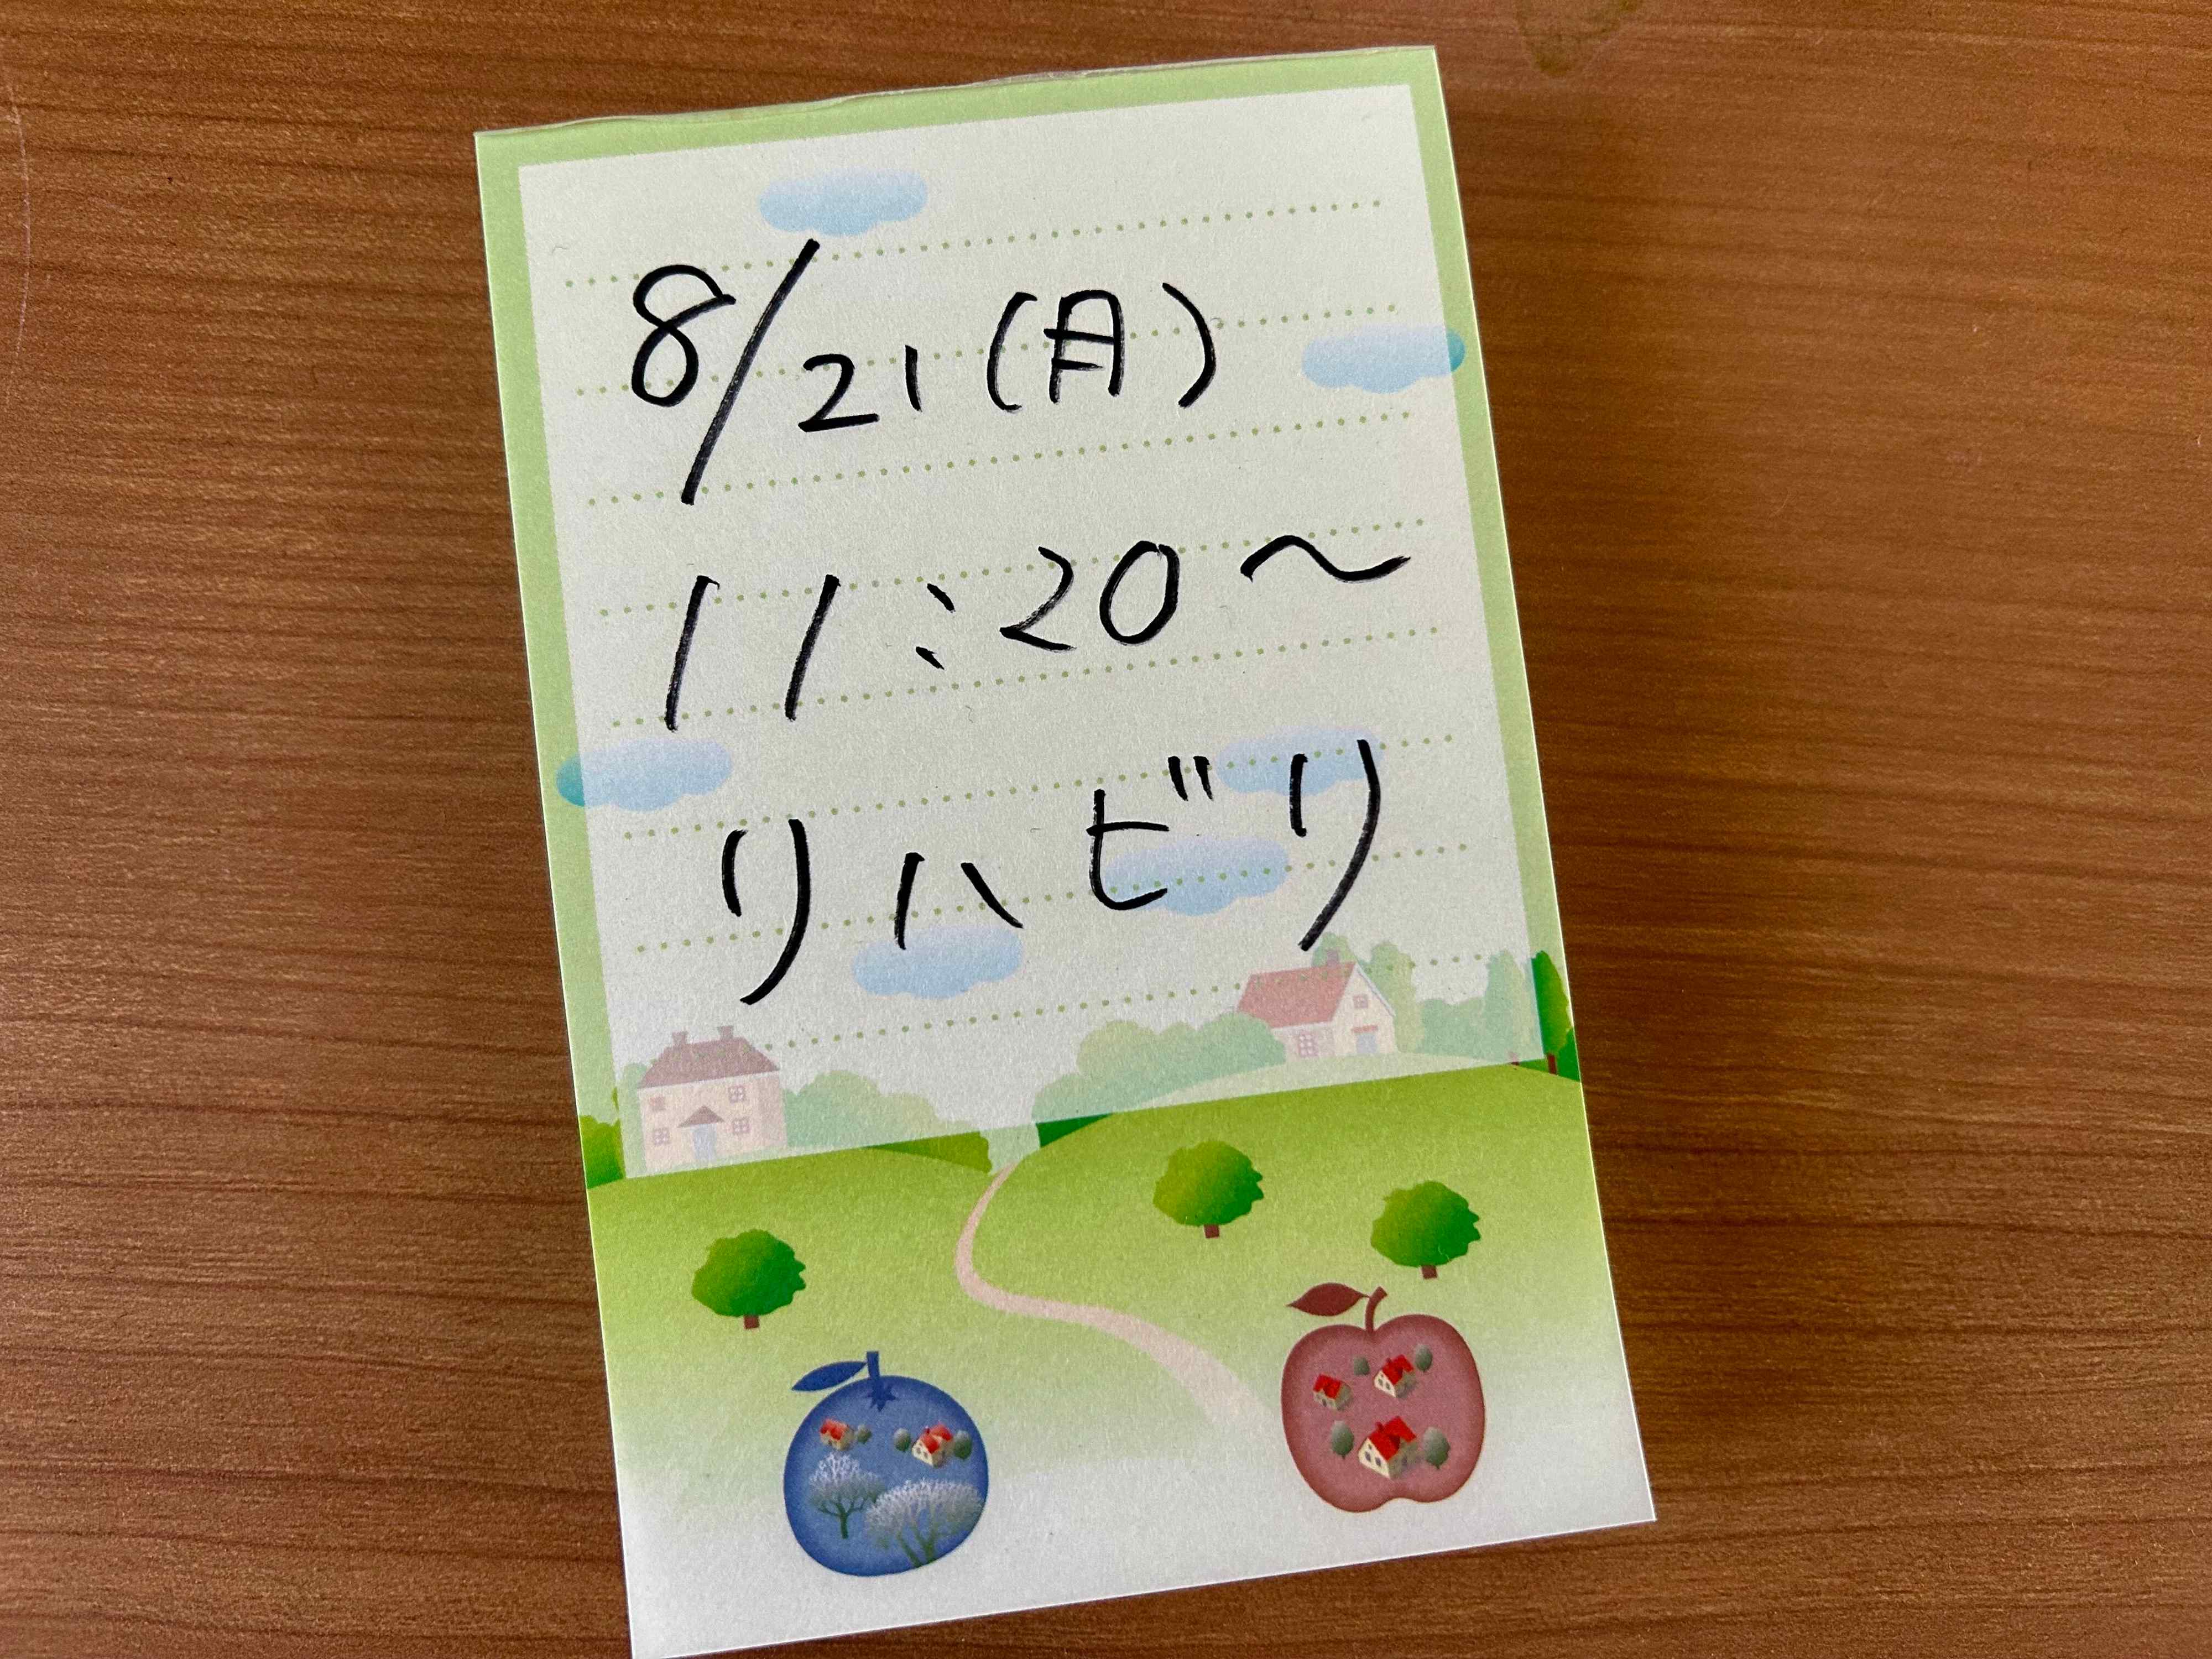 8/21(月)
11:20〜
リハビリ